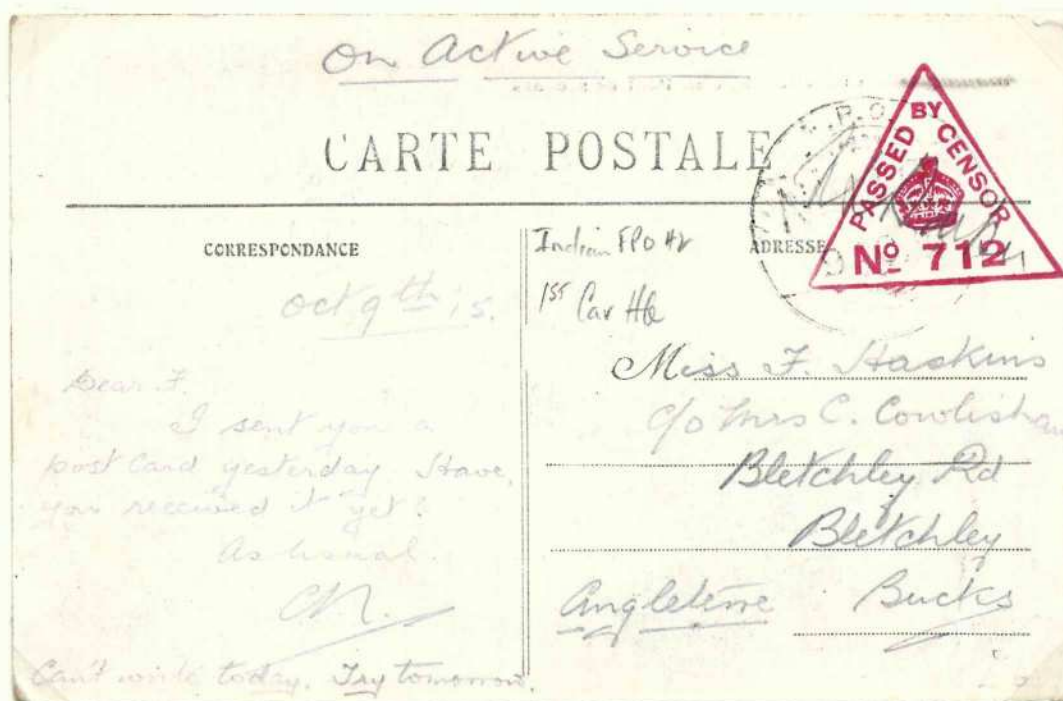 On Active Service
CARTE POSTALE
PASSED BY CENSOR
No 712
CORRESPONDANCE
Oct 9th 15.
Dear F.
I sent you a
post Card yesterday Have
you received it yet?
As Usual.
Can't write today. Try tomorrow.
Indian FPO
1st Cav HQ
ADRESSE
Miss F. Haskins
c/o Mrs C. Cowlishaw
Bletchley Rd
Bletchley
Angleterre Bucks